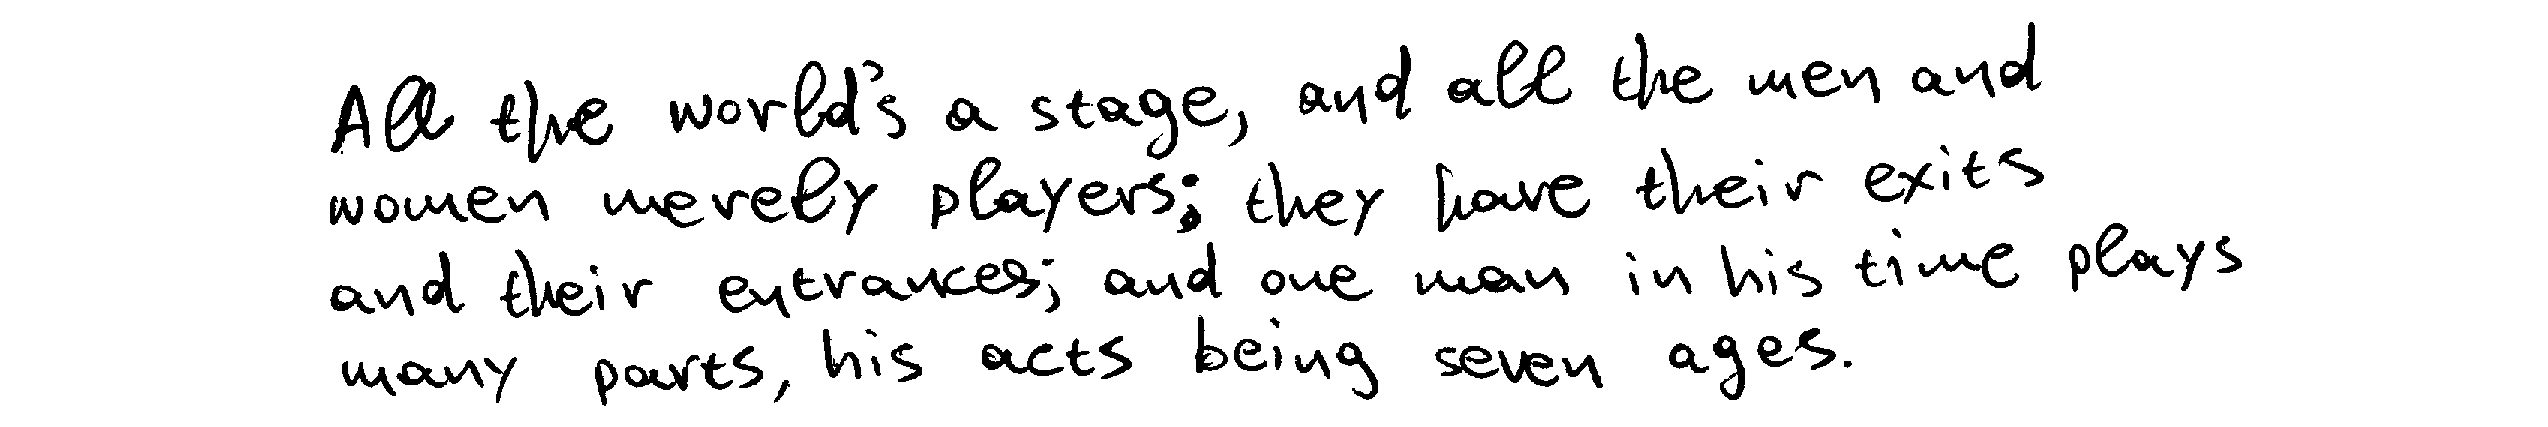 All the world's a stage, and all the men and
women merely players; they have their exits
and their entrances; and one man in his time plays
many parts, his acts being seven ages.